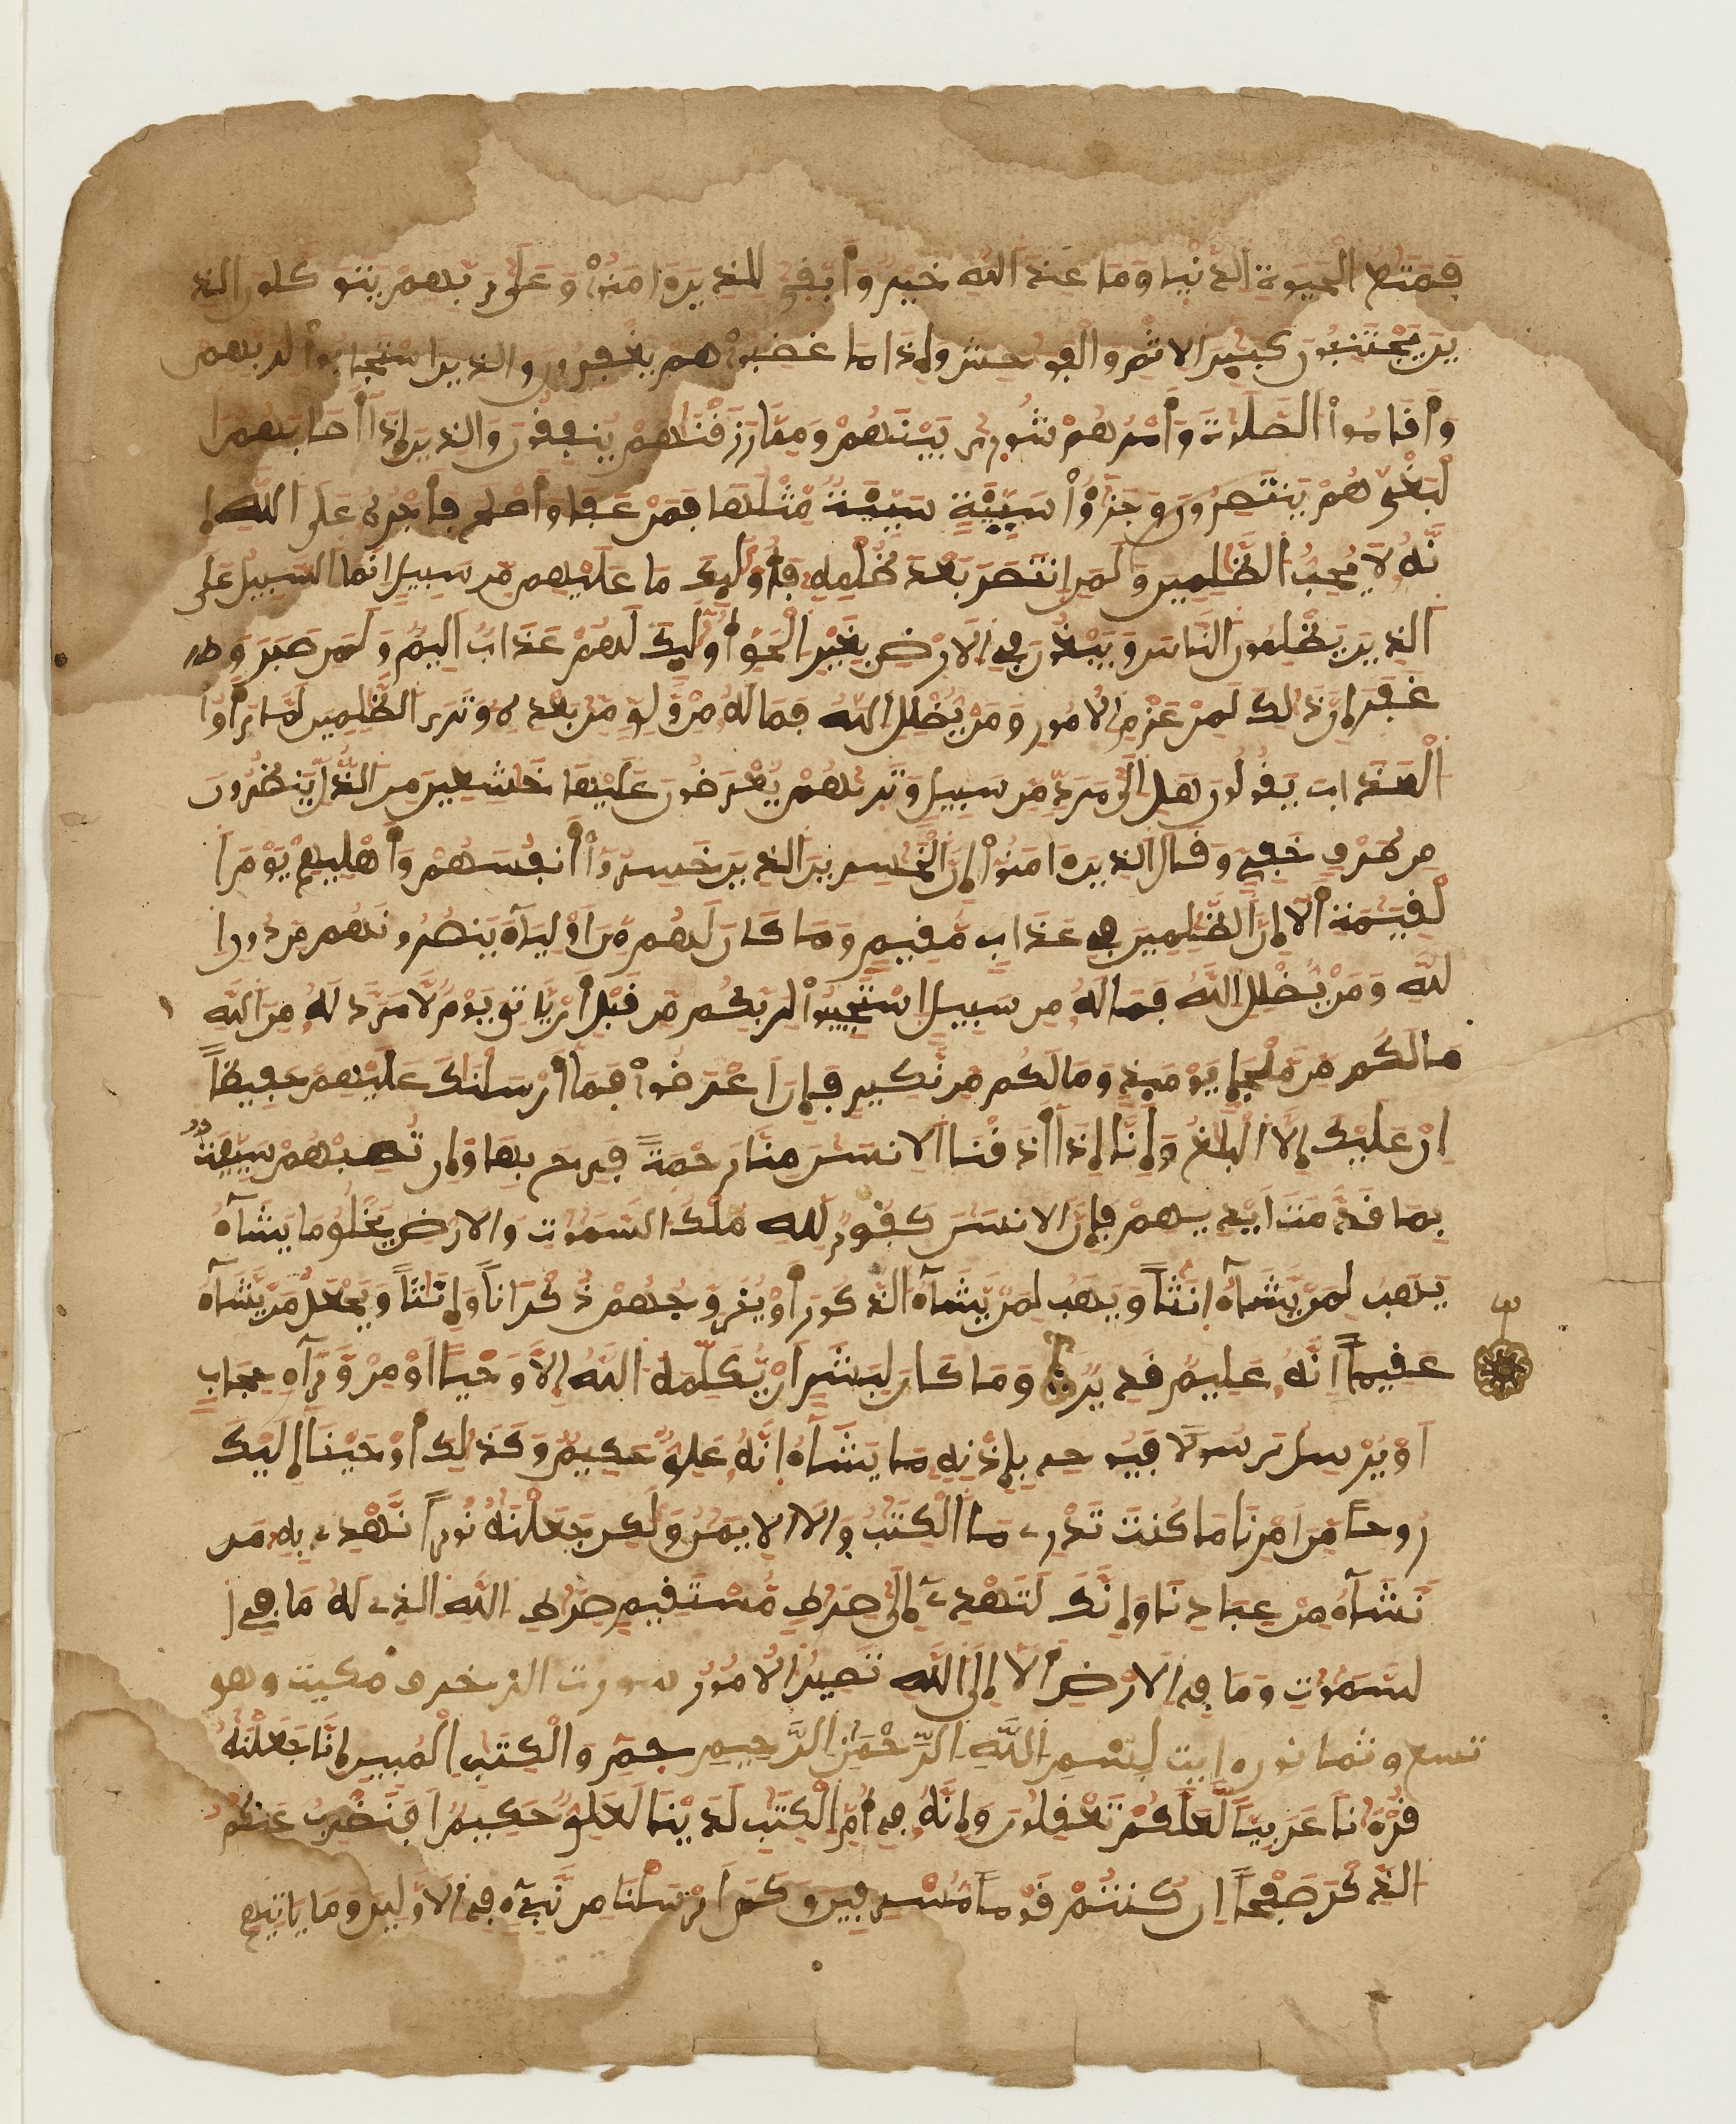 فمتع الحيوة الدنيا وما عند الله خير وأبقى للذين ءامنوا وعلى ربهم يتوكلون والذ
ين يجتنبون كبير الاثم والفوحش وإذا ما غضبوا هم يغفرون والذين استجابوا لربهم
وأقاموا الصلوة وأمرهم شورى بينهم ومما رزقنهم ينفقون والذين إذا أصابهم ا
لبغي هم ينتصرون وجزؤا سيئة سيئة مثلها فمن عفا وأصلح فأجره على الله إ
نه لا يحب الظلمين ولمن انتصر بعد ظلمه فأولئك ما عليهم من سبيل انما السبيل على
الذين يظلمون الناس ويبغون في الارض بغير الحق أولئك لهم عذاب اليم ولمن صبر و
غفر إن ذلك لمن عزم الامور ومن يضلل الله فما له من ولي من بعده وترى الظلمين لما رأوا
العذاب يقولون هل الى مرد من سبيل وتريهم يعرضون عليها خشعين من الذل ينظرون
من طرف خفي وقال الذين ءامنوا إن الخسرين الذين خسروا أنفسهم وأهليهم يوم ا
لقيمة ألا إن الظلمين في عذاب مقيم وما كان لهم من أولياء ينصرونهم من دون ا
لله ومن يضلل الله فما له من سبيل استجيبوا لربكم من قبل أن يأتي يوم لا مرد له من الله
ما لكم من ملجإ يومئذ وما لكم من نكير فإن اعرضوا فما أرسلنك عليهم حفيظا
إن عليك إلا البلغ وإنا إذا أذقنا الانسن منا رحمة فرح بها وإن تصبهم سيئة
بما قدمت ايديهم فإن الانسن كفور لله ملك السموت والارض يخلق ما يشاء
يهب لمن يشاء انثا ويهب لمن يشاء الذكور أو يزوجهم ذكرانا وإنثا ويجعل من يشاء
عقيما انه عليم قدير وما كان لبشر ان يكلمه الله إلا وحيا او من وراء حجاب
او يرسل رسولا فيوحي بإذنه ما يشاء انه علي حكيم وكذلك أوحينا إليك
روحا من امرنا ما كنت تدري ما الكتب ولا الايمن ولكن جعلنه نورا نهدي به من
نشاء من عبادنا وإنك لتهدي إلى صرط مستقيم صرط الله الذي له ما في ا
لسموت وما في الارض ألا إلى الله تصير الامور سورت الزخرف مكيت وهو
تسع وثمانون ءايت بسم الله الرحمن الرحيم حم والكتب المبين إنا جعلنه
قرءنا عربيا لعلكم تعقلون وإنه في أم الكتب لدينا لعلي حكيم افنضرب عنكم
الذكر صفحا ان كنتم قوما مسرفين وكم ارسلنا من نبيء في الاولين وما ياتيهم